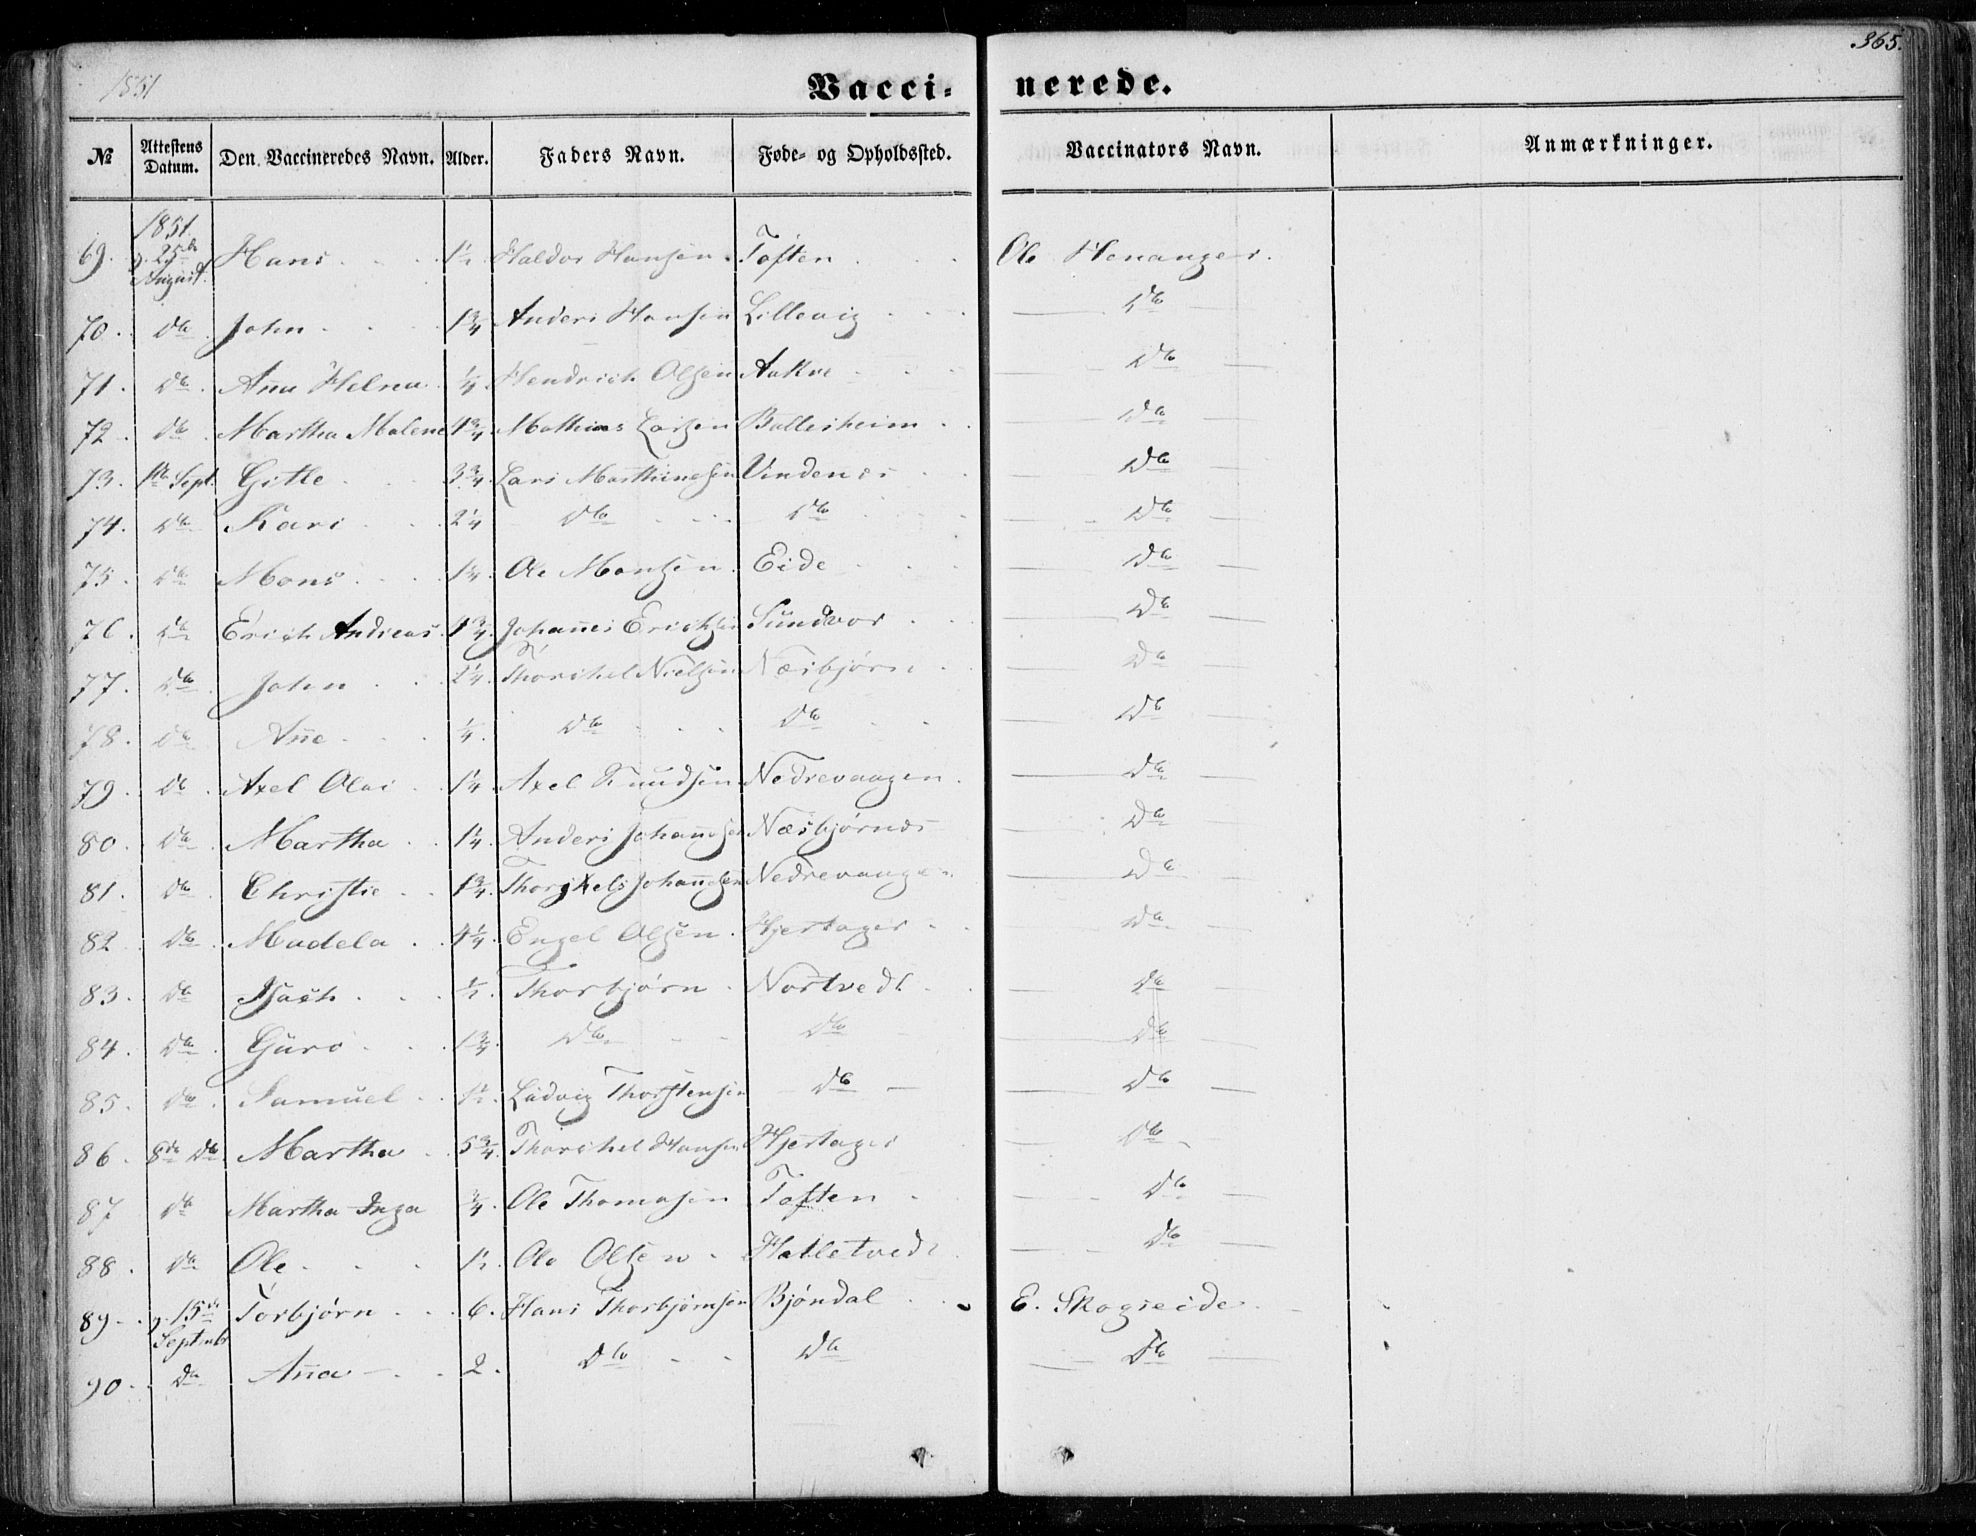 1851
365.
Vacci- nerede.
№ Attestens Datum. Den Vaccineredes Navn. Alder. Faders Navn. Føde- og Opholdssted. Vaccinators Navn. Anmærkninger.
69. 1851 d. 25de August. Hans 1½ Haldor Hansen Toften Ole Henanger.
70. do John 1¾ Anders Hansen Lillevig do
71. do Aña Helena ¼ Hendrich Olsen Aakre do
72. do Martha Malene 1¾ Mathias Larsen Battesheim do
73. 1ste Sept. Gitle 3¾ Lars Marthinesen Vindenes do
74. do Kari 2¼ do do do
75. do Mons 1¼ Ole Monsen Eide do
76. do Erich Andreas 1¾ Johanes Erichsen Sundvor do
77. do John 2¼ Thorchel Nielsen Næsbjørn do
78. do Añe ¼ do do do
79. do Axel Olai 1¼ Axel Knudsen Nedrevaagen do
80. do Martha 1¼ Anders Johañesen Næsbjørnes do
81. do Christie 1¾ Thorgkels Johañesen Nedrevaagen do
82 do Madela 4¼ Engel Olsen Hjertager do
83. do Isach ½ Thorbjørn Nortvedt do
84. do Guro 1¾ do do do
85. do Samuel 1½ Ludvig Thorstensen do do
86. 8de do Martha 5¾ Thorchel Hansen Hjertager do
87 do Martha Inga ¾ Ole Thomasen Toften do
88. do Ole 1½ Ole Olsen Halletvedt do
89. d. 15de Septembr Torbjørn 6. Hans Thorbjørnsen Bjöndal E. Skogseide
90. do Aña 2. do do do